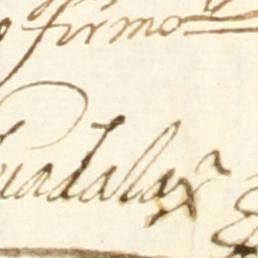 firmo
Guadalaxª